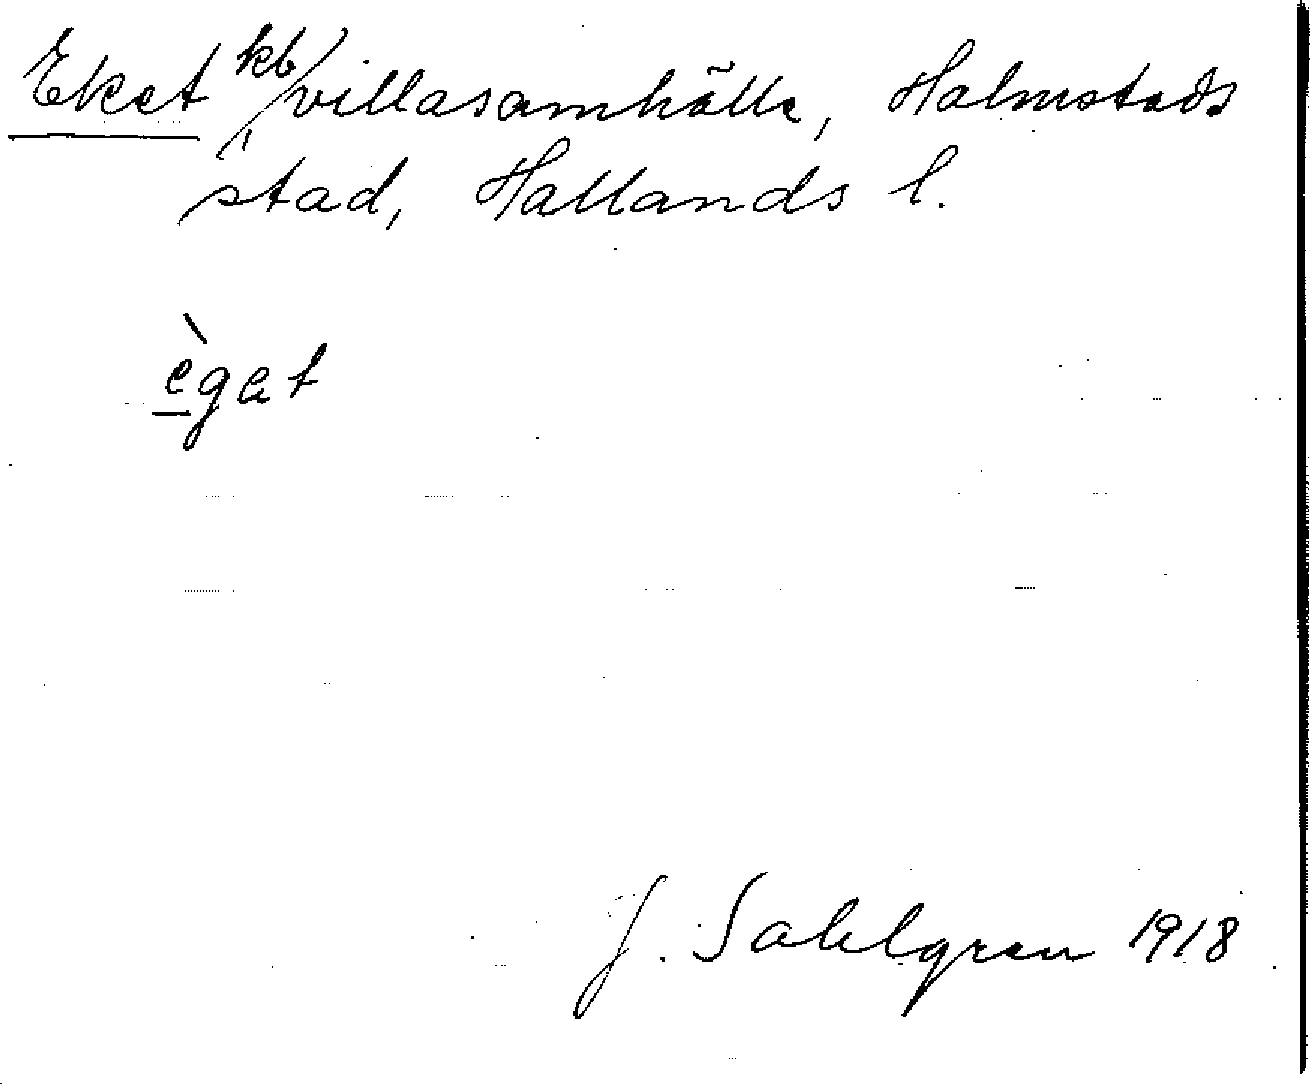 Eket kb/villasamhälle, Halmstads
stad, Hallands l.
ègat
J. Sahlgren 1918